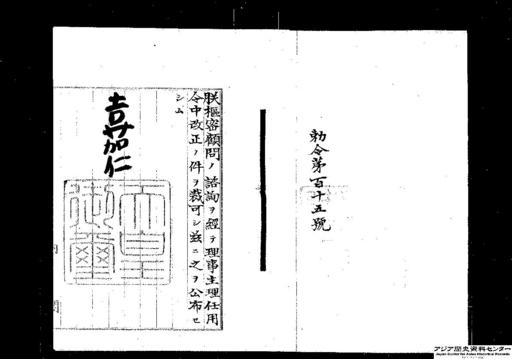 勅令第百十五號
朕樞密顧問ノ諮詢ヲ經テ理事主理任用
令中改正ノ件ヲ裁可シ茲ニ之ヲ公布セ
シム
嘉仁
天皇
御璽
アジア歴史資料センター
Japan Center for Asian Historical Records